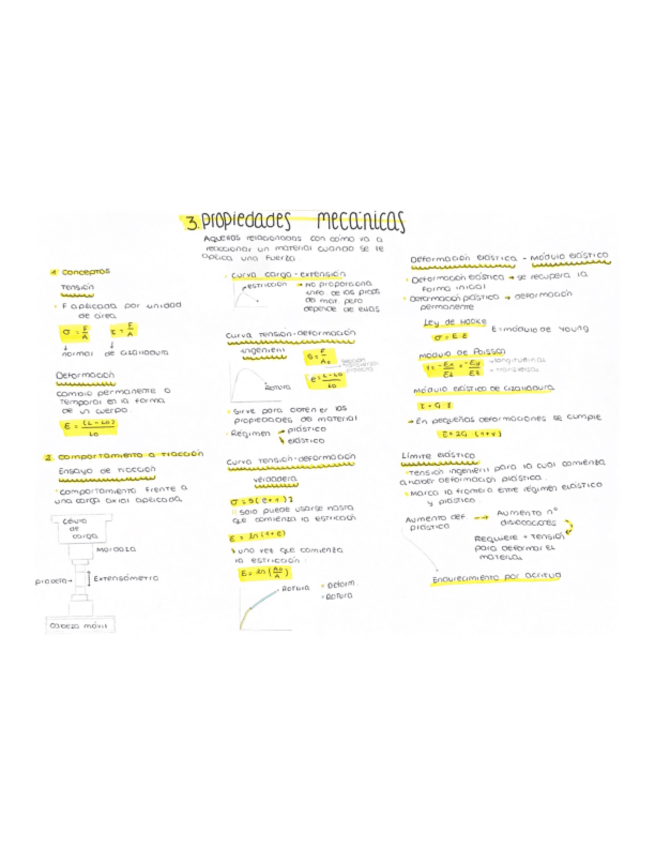 3. propiedades mecánicas
Aquellas relacionadas con cómo va a
reaccionar un material cuando se le
aplica una fuerza.
1. conceptos
Tensión
F aplicada por unidad
de área
σ = F/A   τ = F/A
normal   de cizalladura
Deformación
cambio permanente o
temporal en la forma
de un cuerpo.
ε = (L - L0)/L0
2. comportamiento a tracción
Ensayo de tracción
comportamiento frente a
una carga axial aplicada
célula
de
carga
Mordaza
probeta
Extensómetro
cabeza móvil
curva carga-extensión
estricción → no proporciona
info. de las props
de mat. pero
depende de ellas
curva tensión-deformación
ingenieril
S = F/A0
e = (L - L0)/L0
Rotura
sirve para obtener las
propiedades de material
Régimen plástico
elástico
curva tensión-deformación
verdadera
σ = s(e+1)
solo puede usarse hasta
que comienza la estricción
ε = ln(1+e)
una vez que comienza
la estricción
ε = ln(A0/A)
Rotura
Deform.
Rotura
Deformación elástica - módulo elástico
Deformación elástica → se recupera la
forma inicial
Deformación plástica → deformación
permanente
Ley de Hooke
σ = E·ε   E = módulo de Young
módulo de Poisson
Módulo elástico de cizalladura
τ = G·γ
→ En pequeñas deformaciones se cumple
E = 2G·(1+ν)
Límite elástico
Tensión ingenieril para la cual comienza
a haber deformación plástica.
Marca la frontera entre régimen elástico
y plástico
Aumento def. plástica → Aumento nº
dislocaciones
Requiere + tensión
para deformar el
material
Endurecimiento por acritud